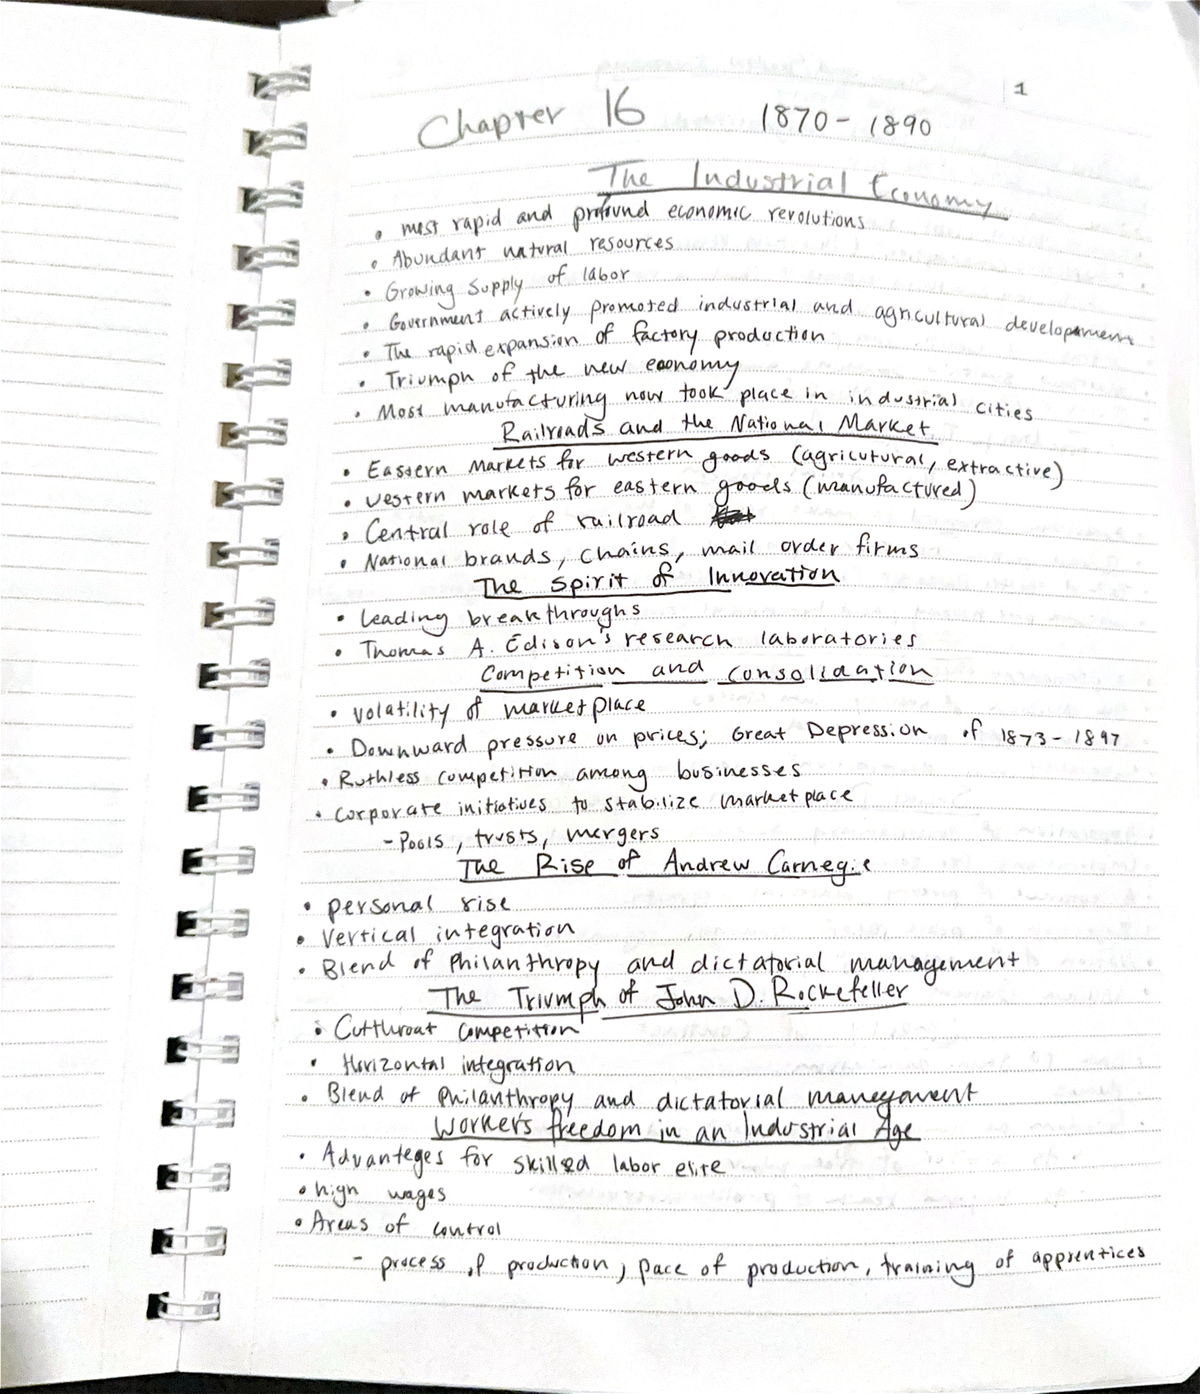 1
Chapter 16 1870 - 1890
The Industrial Economy
• most rapid and profound economic revolutions
• Abundant natural resources
• Growing supply of labor
• Government actively promoted industrial and agricultural development
• The rapid expansion of factory production
• Triumph of the new economy
• Most manufacturing now took place in industrial cities
Railroads and the National Market
• Eastern Markets for western goods (agricutural, extractive)
• Western markets for eastern goods (manufactured)
• Central role of railroad
• National brands, chains, mail order firms
The Spirit of Innovation
• Leading breakthroughs
• Thomas A. Edison's research laboratories
Competition and consolidation
• Volatility of marketplace
• Downward pressure on prices; Great Depression of 1873 - 1897
• Ruthless competition among businesses
• Corporate initiatives to stabilize marketplace
- Pools, trusts, mergers
The Rise of Andrew Carnegie
• personal rise
• Vertical integration
• Blend of Philanthropy and dictatorial management
The Triumph of John D. Rockefeller
• Cutthroat competition
• Horizontal integration
• Blend of Philanthropy and dictatorial manegement
Worker's freedom in an Industrial Age
• Advanteges for skilled labor elite
• high wages
• Areas of control
- process of production, pace of production, training of apprentices